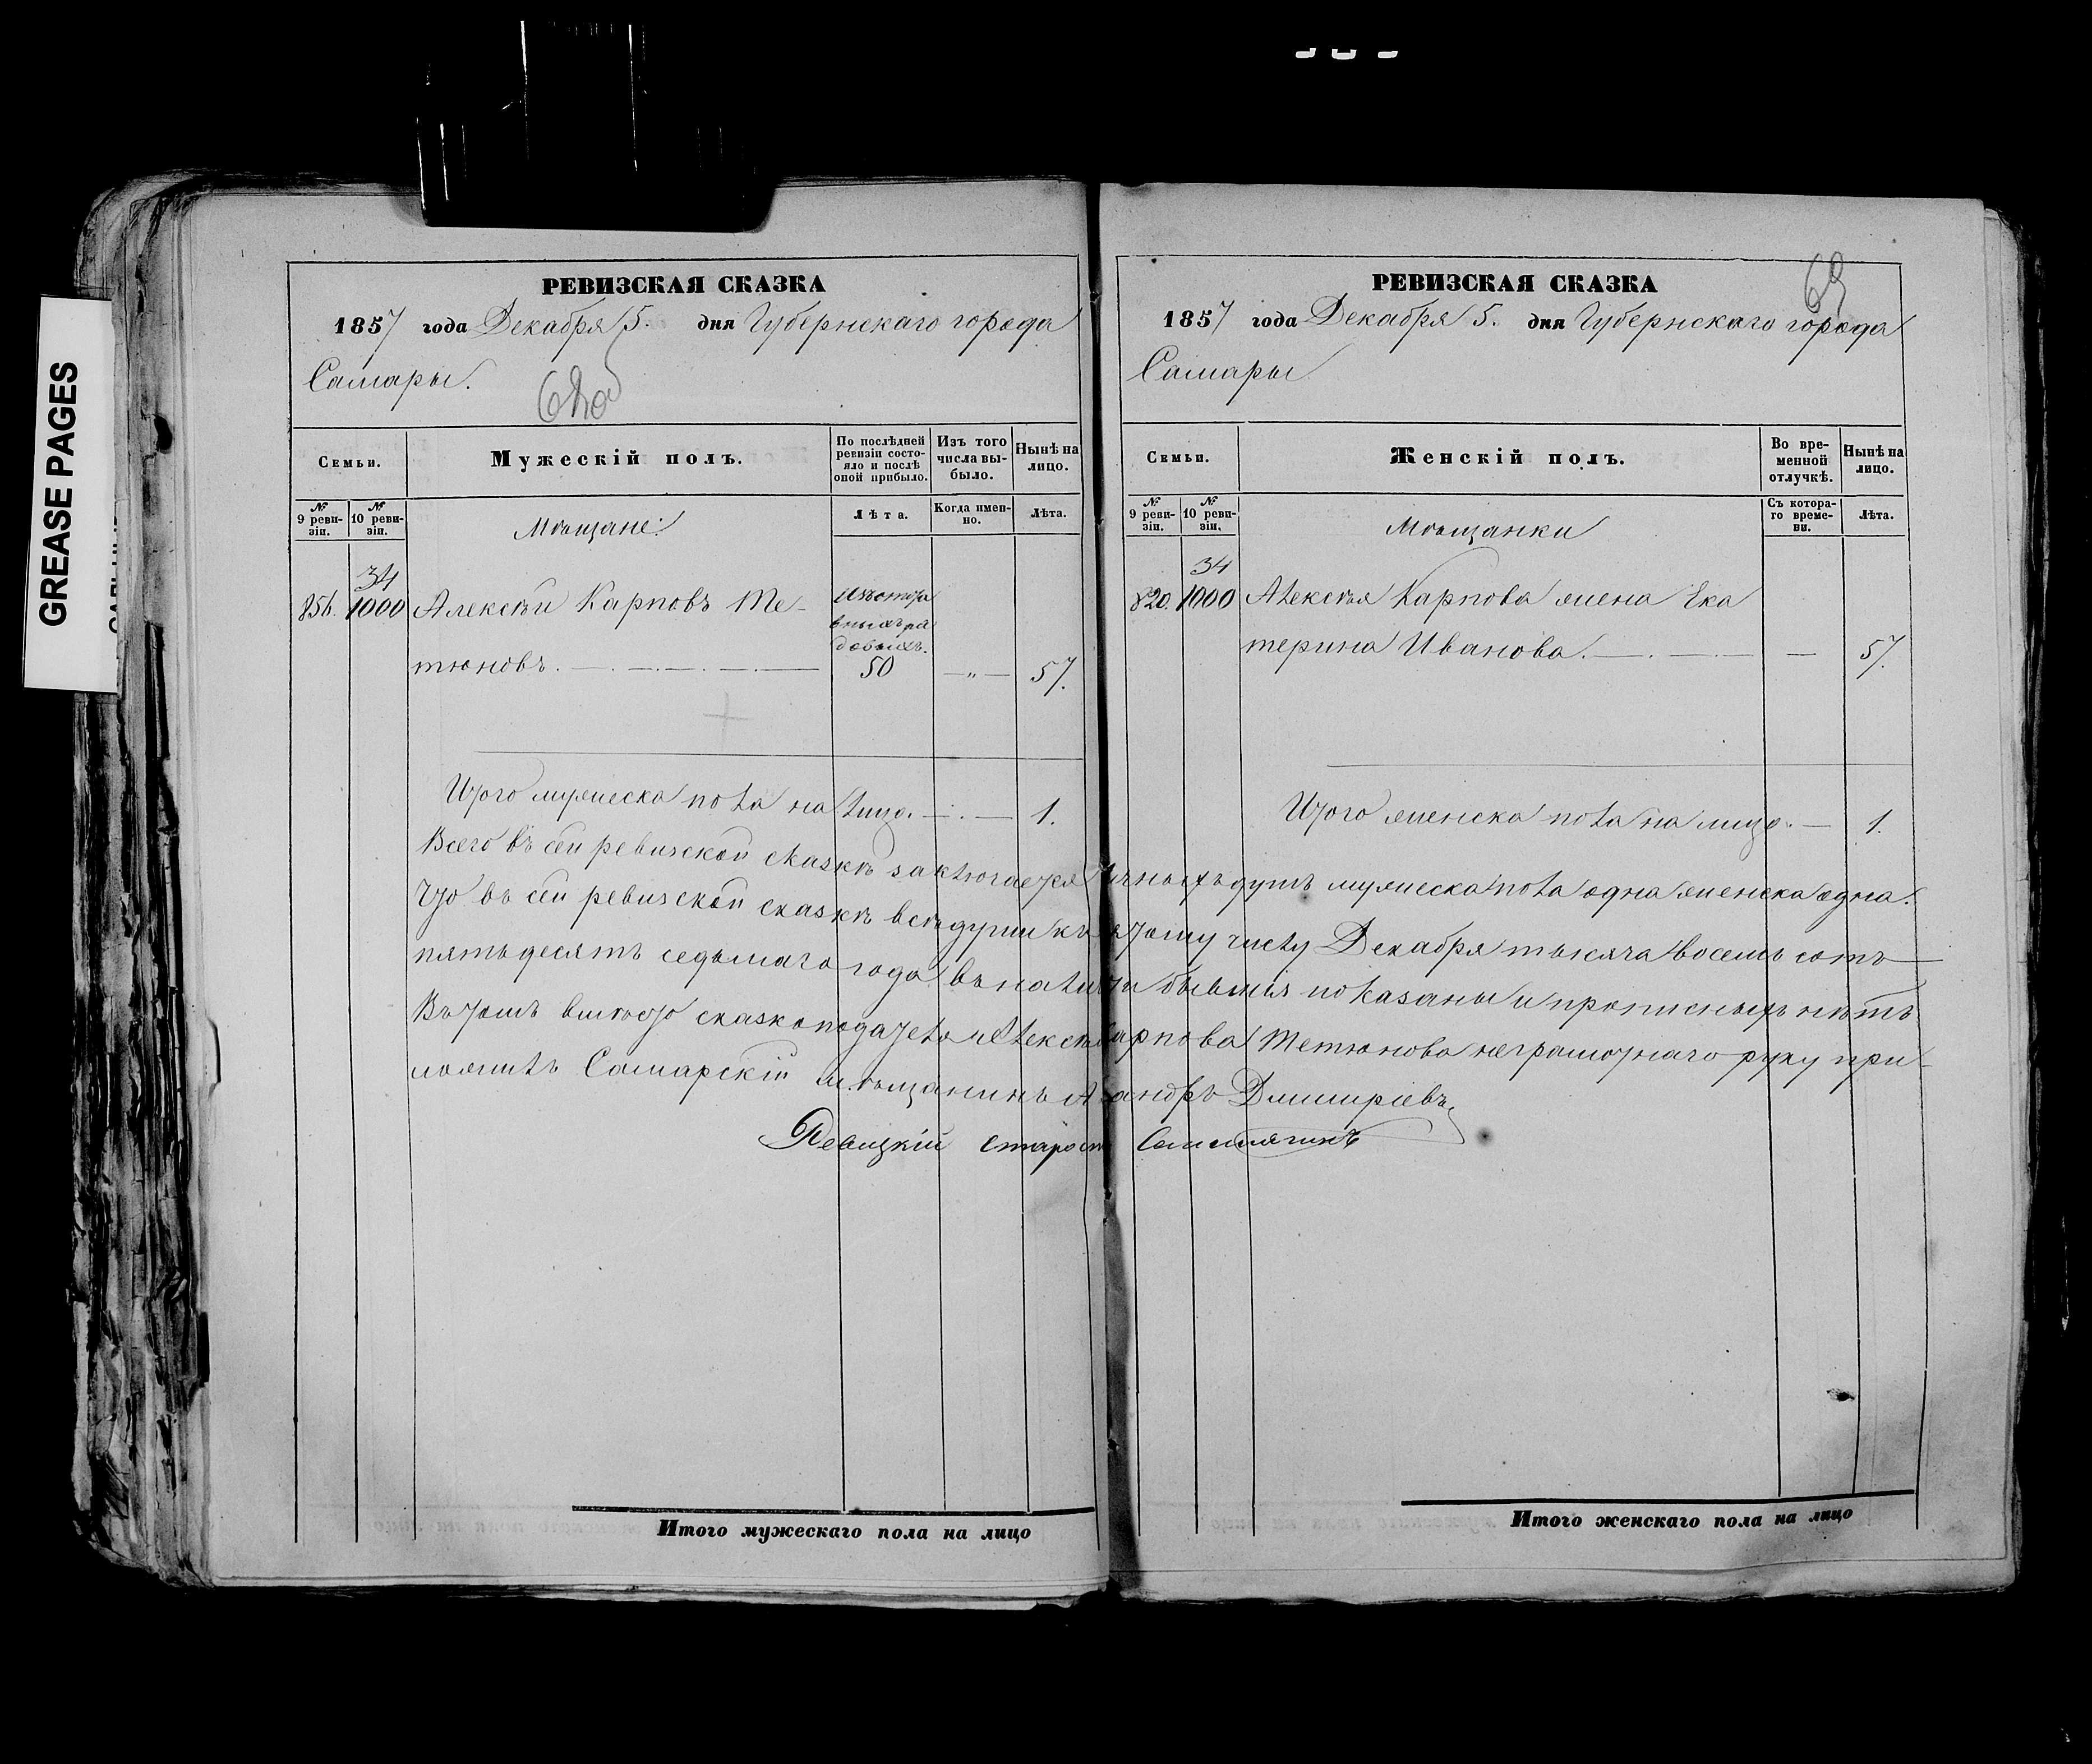 GREASE PAGES
РЕВИЗСКАЯ СКАЗКА
1857 года Декабря 5. дня Губернскаго города
Самары.
Семьи.
Мужескій полъ.
По послѣдней ревизіи состояло и послѣ оной прибыло.
Изъ того числа выбыло.
Нынѣ на лицо.
№ 9 ревизіи.
№ 10 ревизіи.
Мѣщане:
Лѣта.
Когда именно.
Лѣта.
34
856. 1000 Алексѣй Карповъ Те-
тюновъ. 50 — „ — 57.
Итого мужеска пола на лицо. — 1.
РЕВИЗСКАЯ СКАЗКА
69
1857 года Декабря 5. дня Губернскаго города
Самары
Семьи.
Женскій полъ.
Во временной отлучкѣ.
Нынѣ на лицо.
№ 9 ревизіи.
№ 10 ревизіи.
Мѣщанки
Съ котораго времени.
Лѣта.
34
820. 1000 Алексѣя Карпова жена Ека
терина Иванова. — 57.
Итого женска пола на лицо. — 1.
Всего въ сей ревизской сказкѣ заключается душъ мужеска пола одна женска одна.
Что въ сей ревизской сказкѣ всѣ души къ числу Декабря тысяча восемь сотъ
пятьдесятъ седьмаго года въ наличіи бывшія показаны и прописныхъ нѣтъ
Въ томъ вмѣсто сказкоподателя Карпова Тетюнова неграмотнаго руку при-
ложилъ Самарскій мѣщанинъ Дмитріевъ.
Староста
Итого мужескаго пола на лицо
Итого женскаго пола на лицо